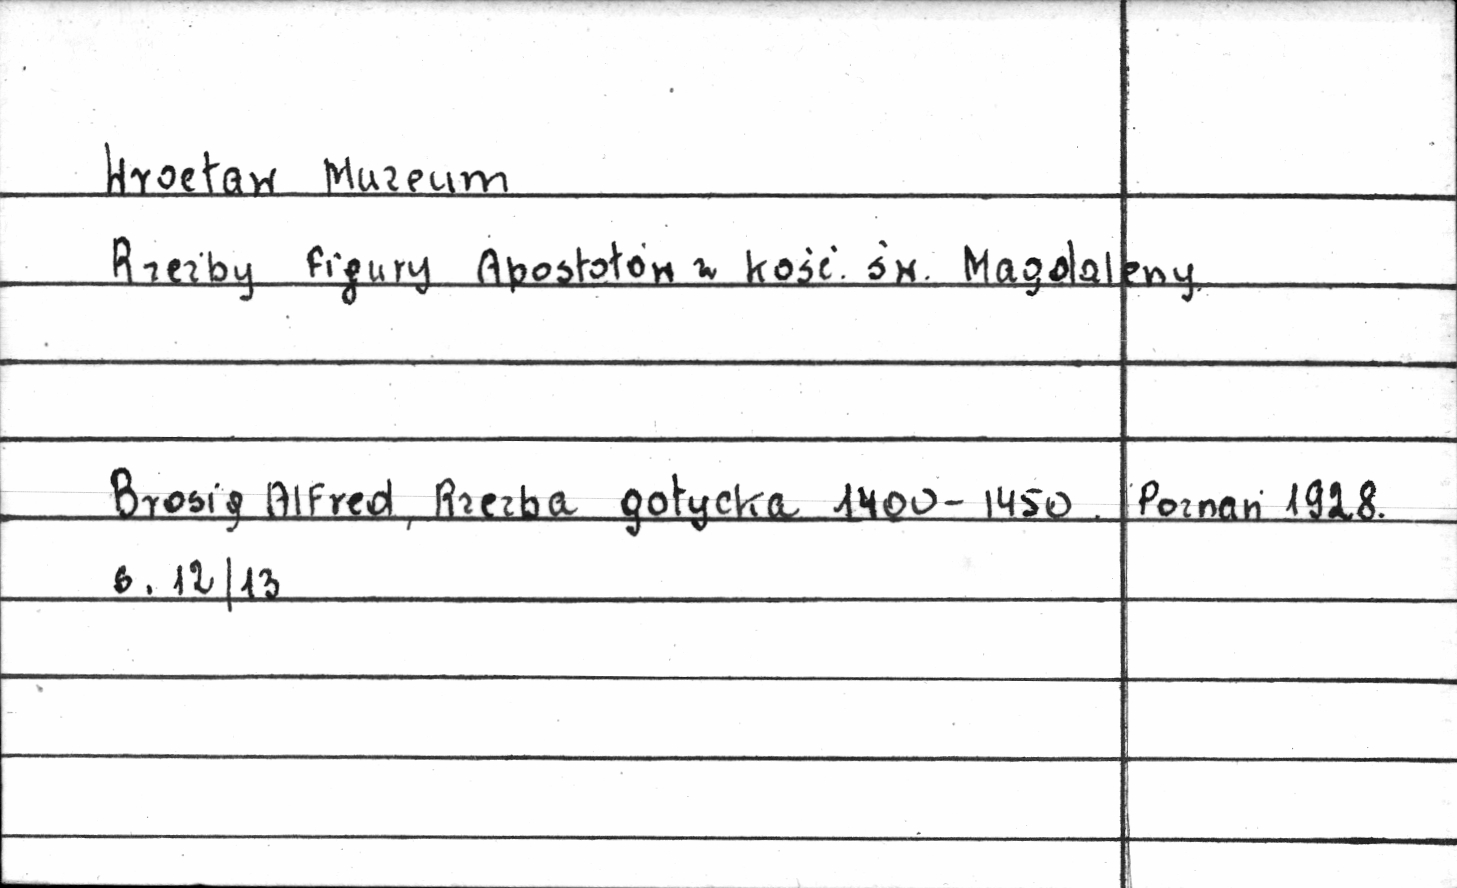 Wrocław Muzeum
Rzeźby figury Apostołów z kość. św. Magdaleny.
Brosig Alfred, Rzezba gotycka 1400-1450. Poznań 1928.
s. 12/13